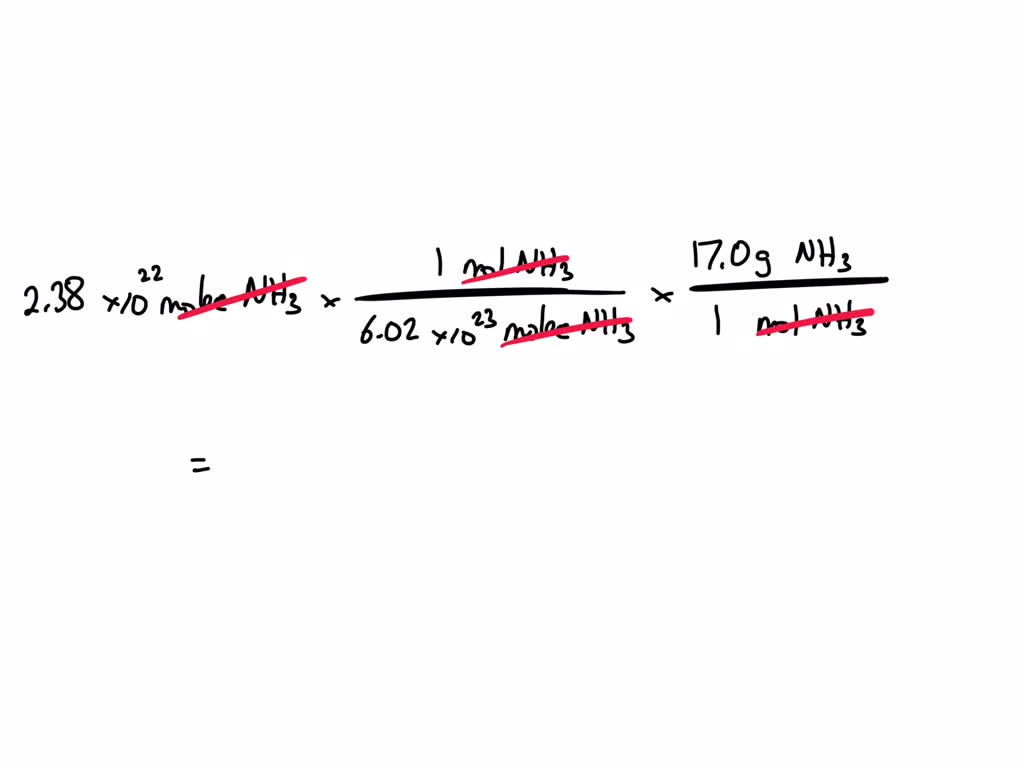 2.38 ×10²² molec NH₃ × 1 mol NH₃ / 6.02 ×10²³ molec NH₃ × 17.0g NH₃ / 1 mol NH₃
=